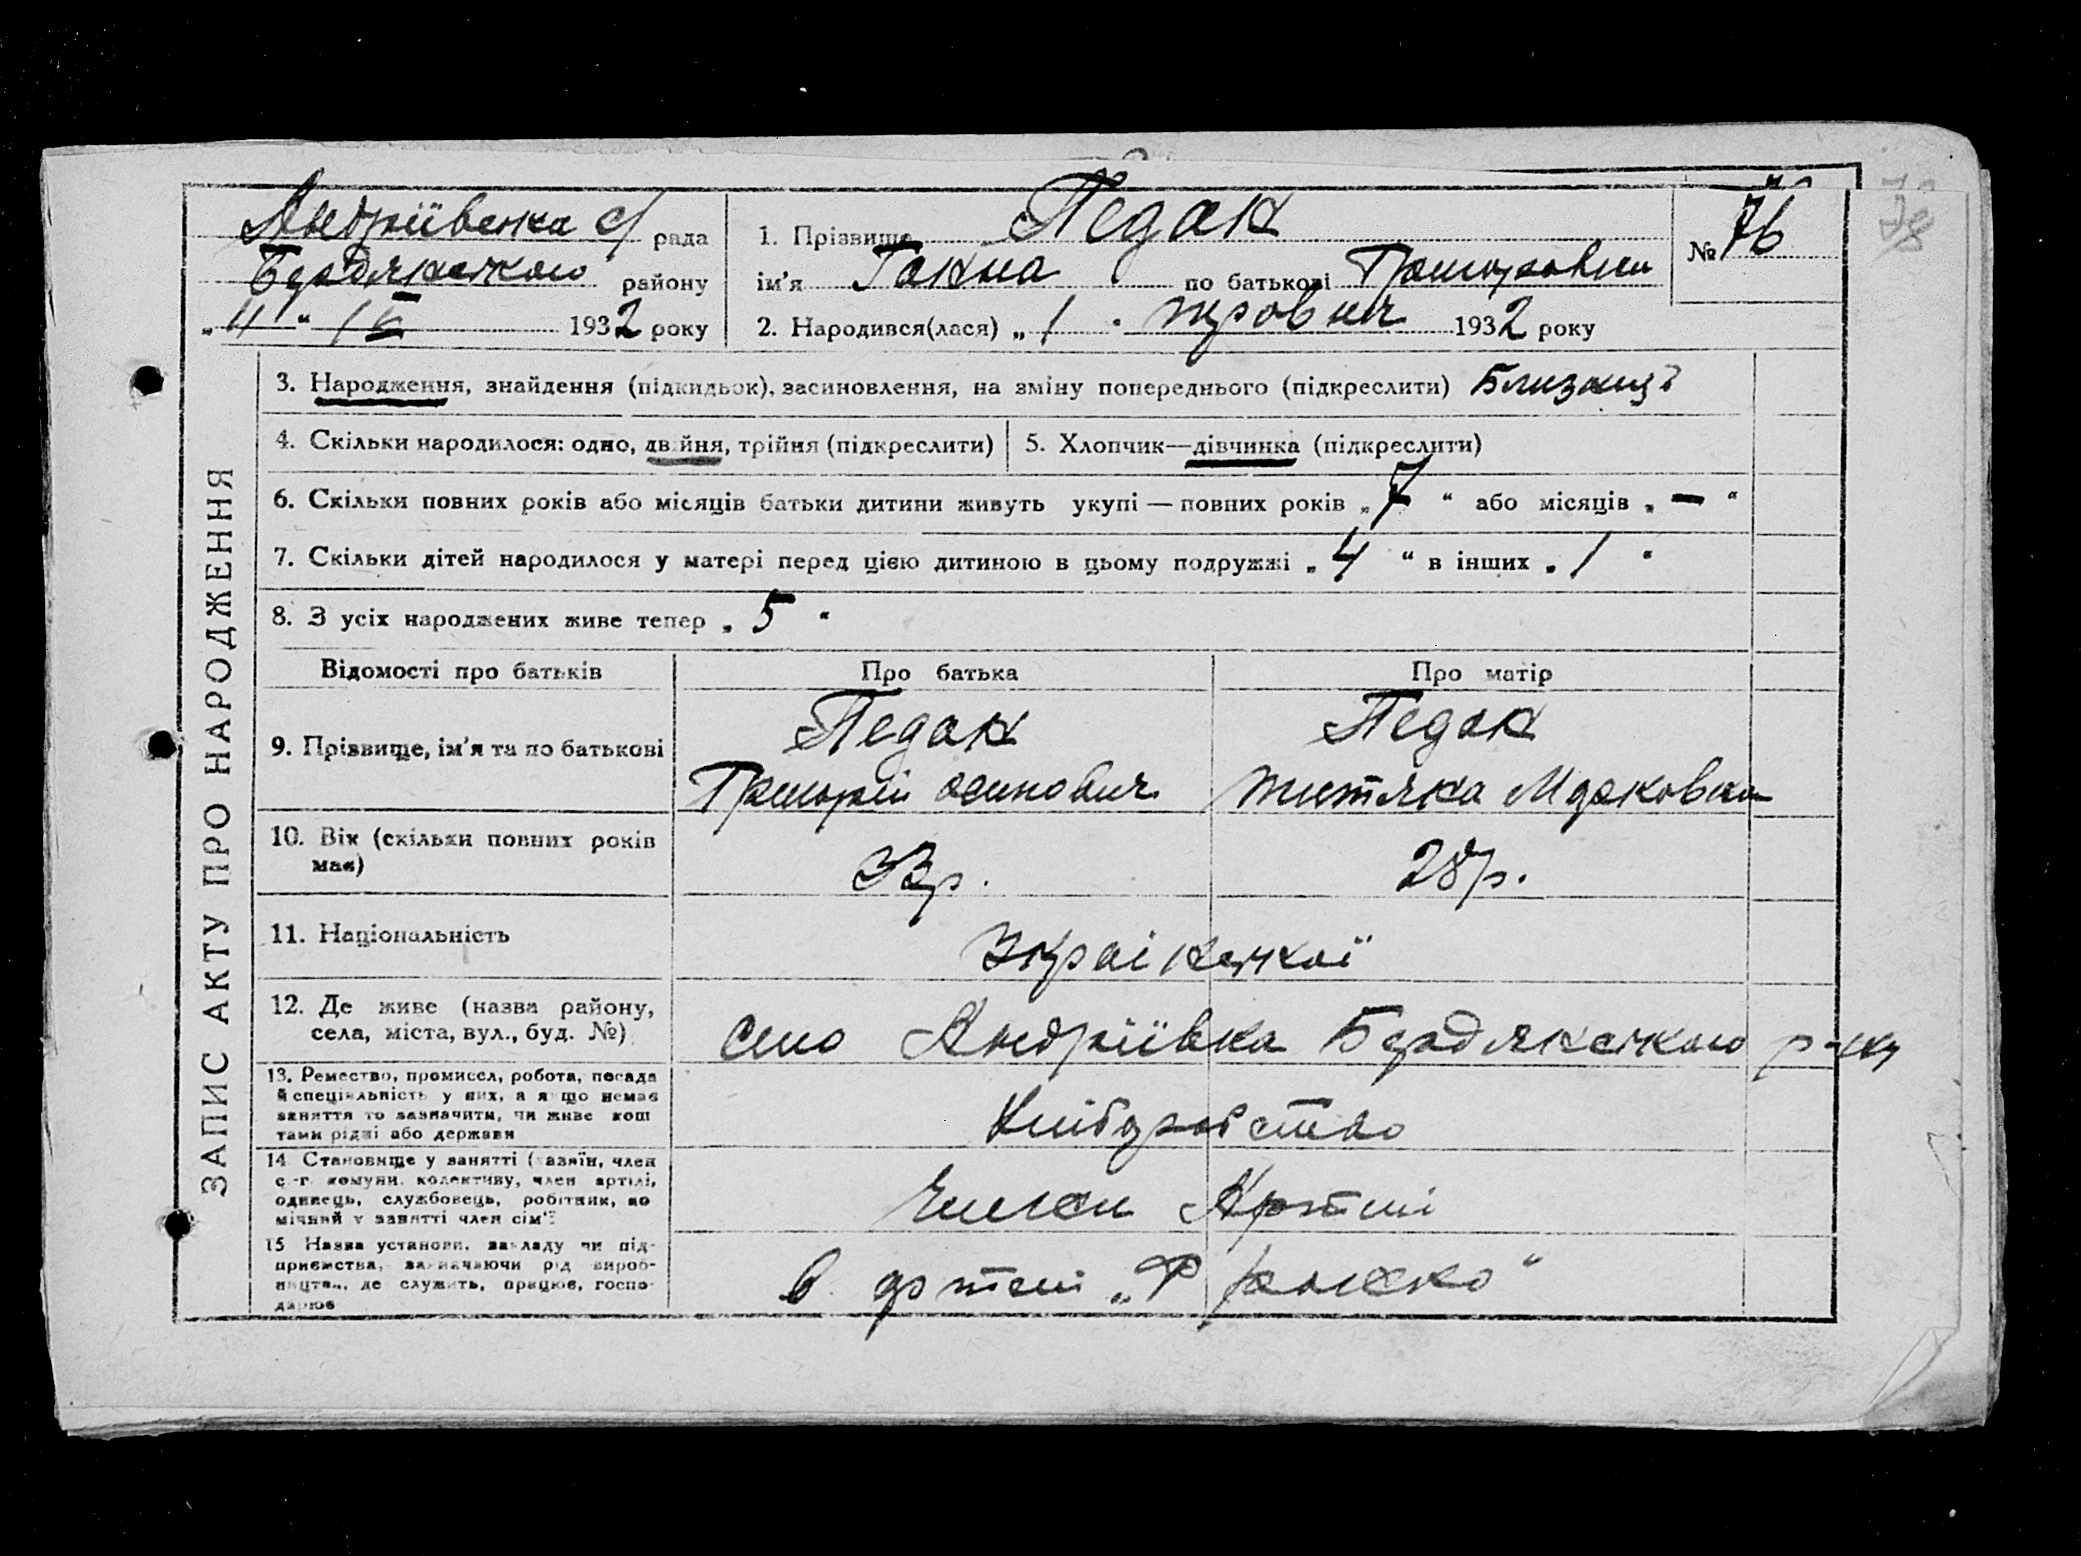 Андріївська с/ рада
Бердянського району
„11“ IV 1932 року
1. Прізвище Педак
ім'я Ганна по батькові Григоровна
№ 76
78
2. Народився(лася) „1 “ 1932 року
ЗАПИС АКТУ ПРО НАРОДЖЕННЯ
3. Народження, знайдення (підкидьок), засиновлення, на зміну попереднього (підкреслити) Близнці
4. Скільки народилося: одно, двійня, трійня (підкреслити)
5. Хлопчик—дівчинка (підкреслити)
6. Скільки повних років або місяців батьки дитини живуть укупі — повних років „7“ або місяців „—“
7. Скільки дітей народилося у матері перед цією дитиною в цьому подружжі „4“ в інших „1“
8. З усіх народжених живе тепер „5“
Відомості про батьків
Про батька
Про матір
9. Прізвище, ім'я та по батькові
Педак
Григорій Осипович
Педак
Марковна
10. Вік (скільки повних років має)
33р.
28р.
11. Національність
Української
12. Де живе (назва району,
села, міста, вул., буд. №)
село Андріївка Бердянського р-ну
13. Ремество, промисел, робота, посада
й спеціяльність у них, а якщо немає
заняття то зазначити, чи живе кош
тами рідні або держави
Хліборобство
14. Становище у занятті (хазяїн, член
с.-г. комуни, колективу, член артілі,
одинець, службовець, робітник, по
мічний у занятті член сім'ї
Члени Артілі
15 Назва установи, закладу чи під-
приємства, зазначаючи рід вироб-
ництва, де служить, працює, госпо-
дарює
в артілі „Франко“